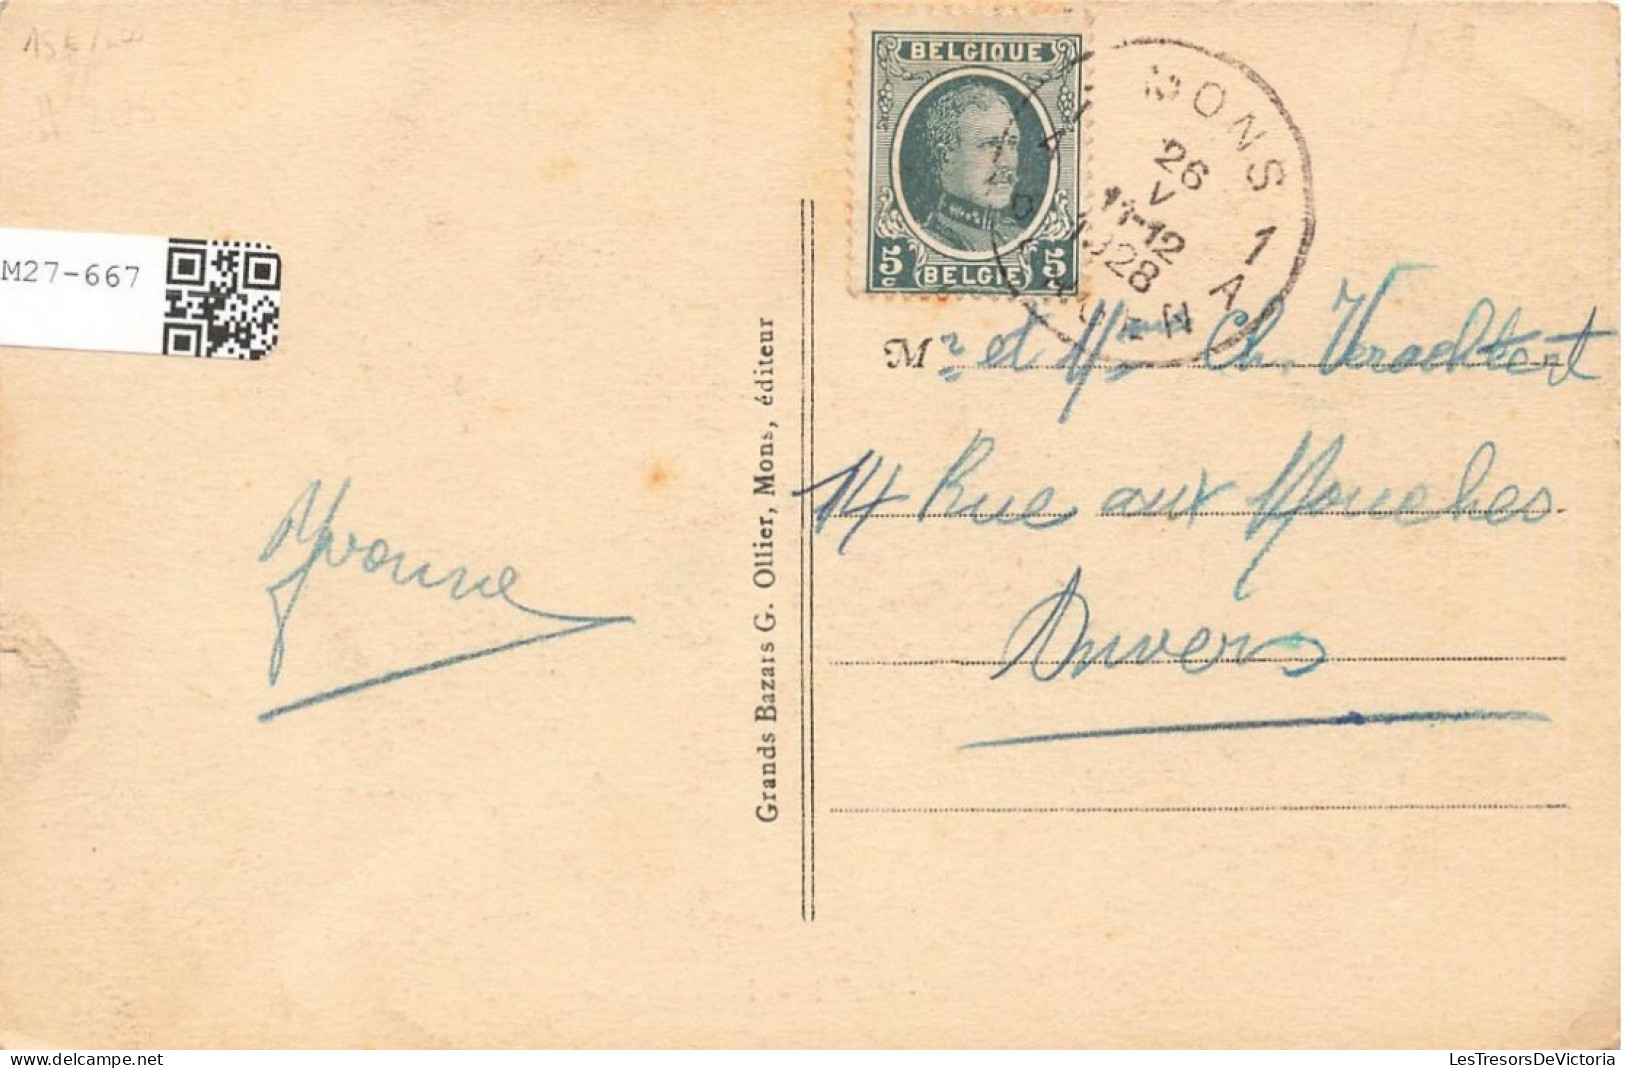 BELGIQUE
5 c BELGIE 5
MONS 1
26
V
11-12
1928
A
BERGEN
M27-667
Mr et Mme Ch. Verachtert
14 Rue aux Mouches
Anvers
Yvonne
Grands Bazars G. Ollier, Mons, éditeur
LesTresorsDeVictoria